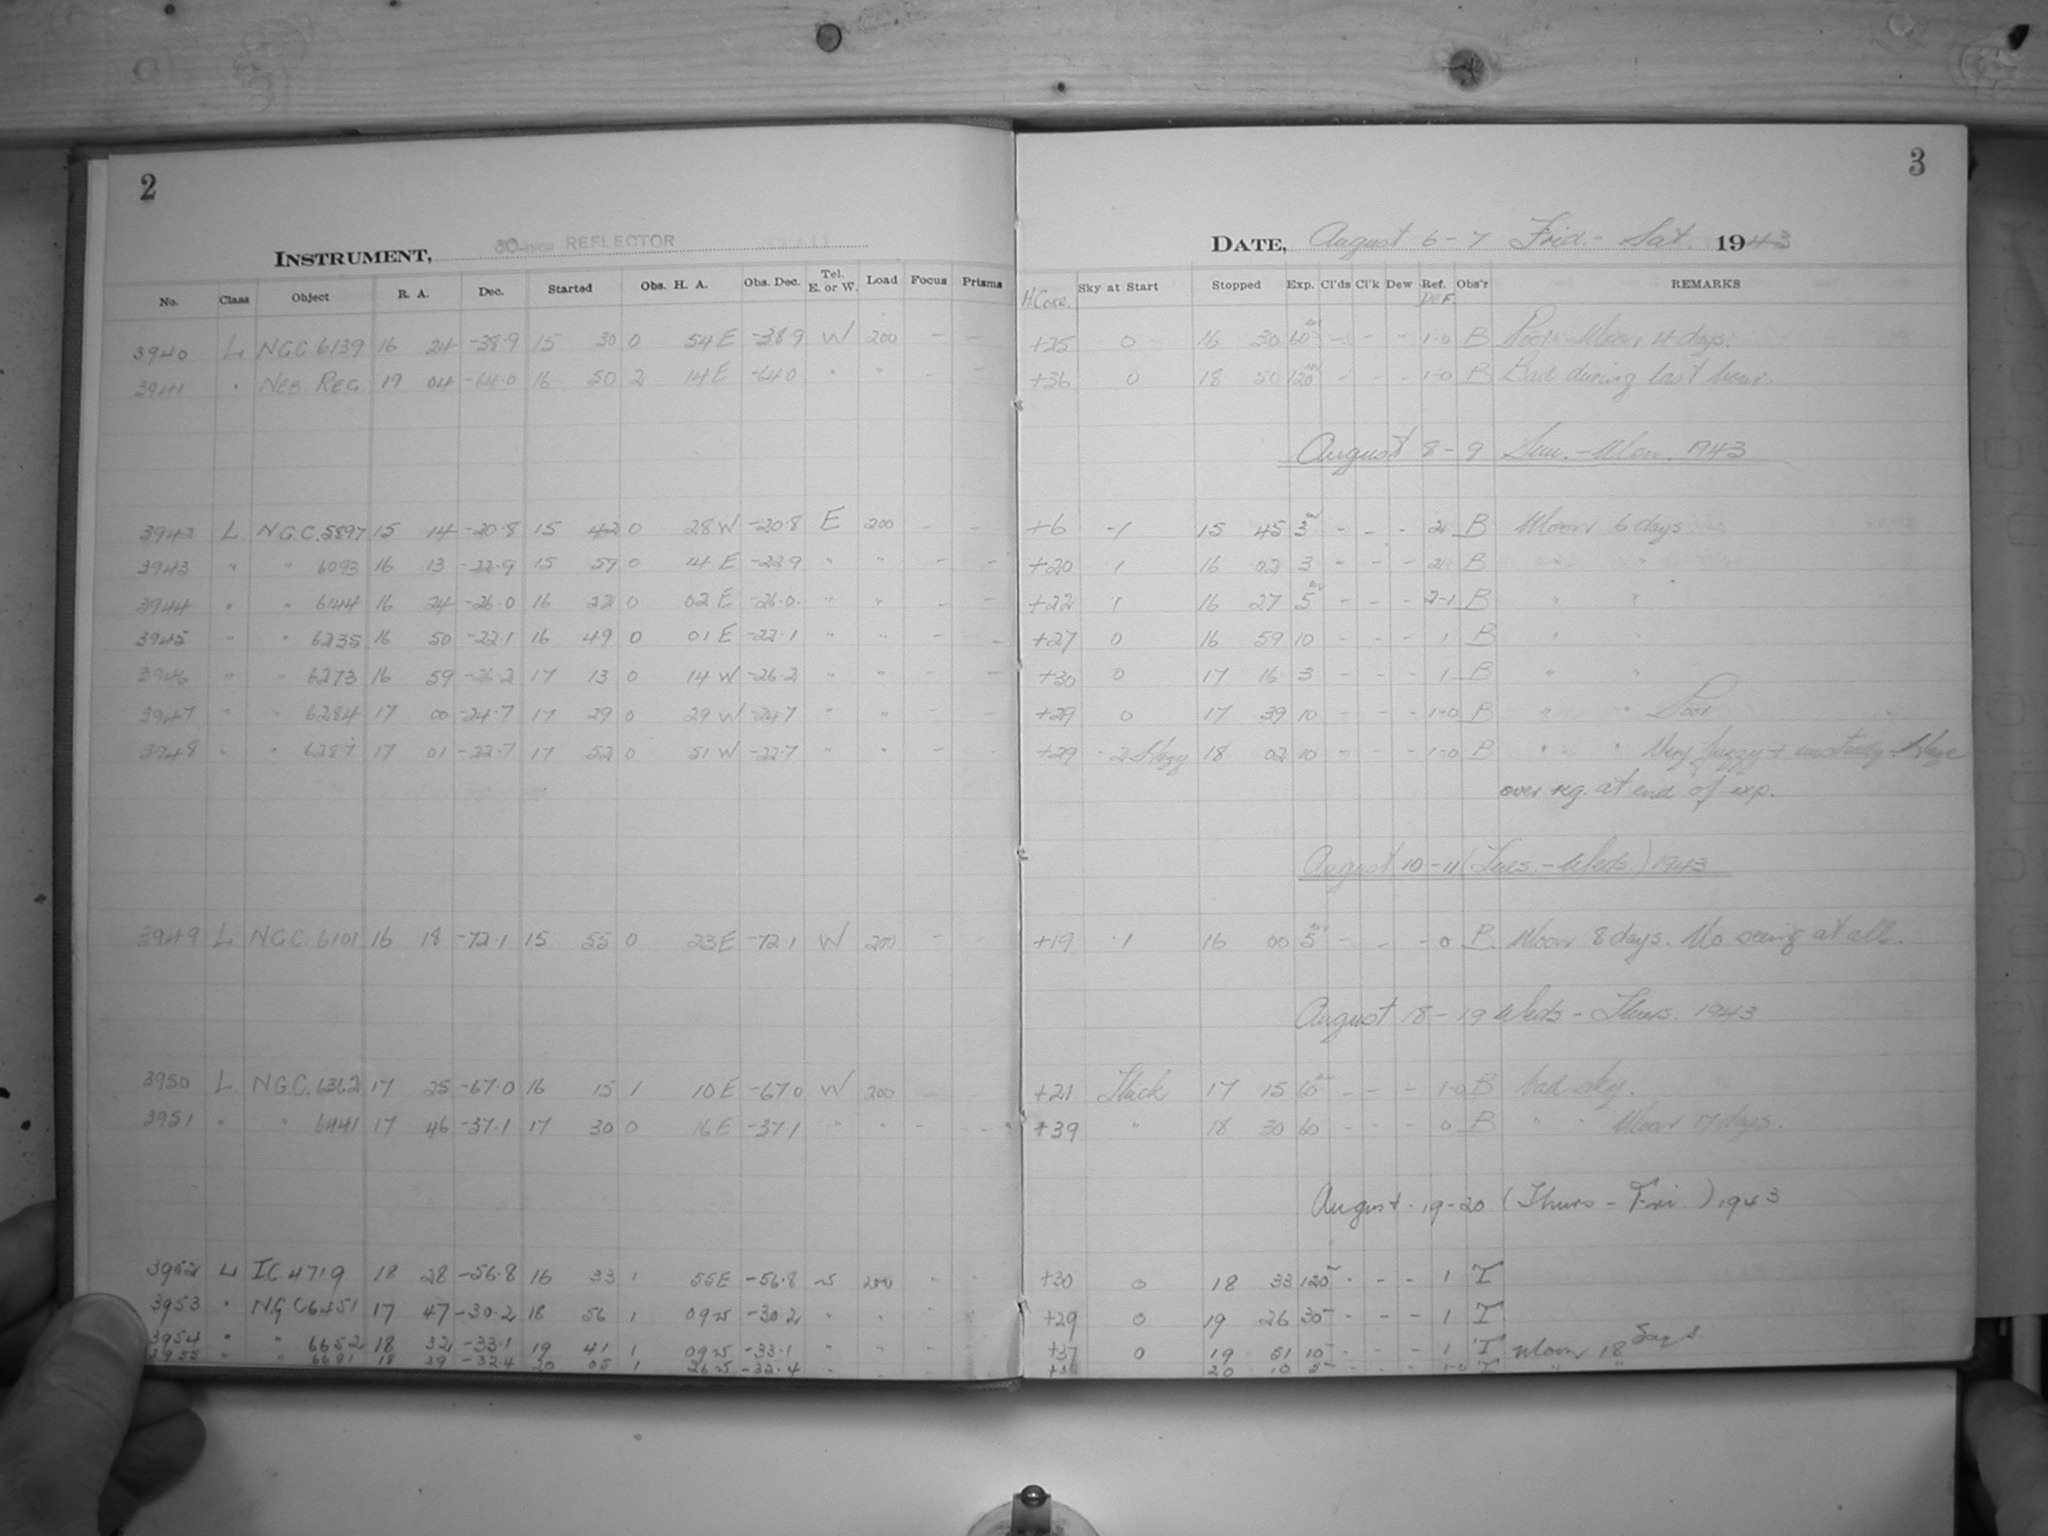 2
3
INSTRUMENT, 60-INCH REFLECTOR
DATE, August 6-7 Frid.- Sat. 1943
No. Class Object R. A. Dec. Started Obs. H. A. Obs. Dec. Tel. E. or W. Load Focus Prisms H.Corr. Sky at Start Stopped Exp. Cl'ds Cl'k Dew Ref. DEF. Obs'r REMARKS
3940 L NGC 6139 16 24 -38.9 15 30 0 54 E -38.9 W 200 - - +25 0 16 30 60 - - - 1-0 B Poor. Moon 4 days.
3941 " NEB. REG 19 04 -64.0 16 50 2 14 E -64.0 " " - - +36 0 18 50 120 - - - 1-0 B Bad during last hour.
August 8-9 Sun.-Mon. 1943
3942 L NGC. 5897 15 14 -20.8 15 42 0 28 W -20.8 E 200 - - +6 -1 15 45 3 - - - 2 B Moon 6 days.
3943 " " 6093 16 13 -22.9 15 59 0 14 E -22.9 " " - - +20 1 16 02 3 - - - 2 B " "
3944 " " 6144 16 24 -26.0 16 22 0 02 E -26.0 " " - - +22 1 16 27 5 - - - 2-1 B " "
3945 " " 6235 16 50 -22.1 16 49 0 01 E -22.1 " " - - +27 0 16 59 10 - - - 1 B " "
3946 " " 6273 16 59 -26.2 17 13 0 14 W -26.2 " " - - +30 0 17 16 3 - - - 1 B " "
3947 " " 6284 17 00 -24.7 17 29 0 29 W -24.7 " " - - +29 0 17 39 10 - - - 1-0 B " " Poor
3948 " " 6287 17 01 -22.7 17 52 0 51 W -22.7 " " - - +29 -2 Hazy 18 02 10 - - - 1-0 B " " Very fuzzy + unsteady. Haze
over reg. at end of exp.
August 10-11 (Tues.-Weds.) 1943
3949 L NGC. 6101 16 18 -72.1 15 55 0 23 E -72.1 W 200 - - +19 1 16 00 5 - - - 0 B Moon 8 days. No seeing at all.
August 18-19 Weds - Thurs. 1943
3950 L NGC. 6362 17 25 -67.0 16 15 1 10 E -67.0 W 200 - - +21 Thick 17 15 60 - - - 1-0 B bad sky.
3951 " " 6441 17 46 -37.1 17 30 0 16 E -37.1 " " - - +39 " 18 30 60 - - - 0 B " " Moon 17 days.
August. 19-20 (Thurs - Fri.) 1943
3952 L IC 4719 18 28 -56.8 16 33 1 55 E -56.8 W 200 - - +30 0 18 33 120 - - - 1 T
3953 " NGC 6451 17 47 -30.2 18 56 1 09 W -30.2 " " " " +29 0 19 26 30 - - - 1 T
3954 " " 6652 18 32 -33.1 19 41 1 09 W -33.1 " " - - +37 0 19 51 10 - - - 1 T Moon 18 days.
3955 " " 6681 18 39 -32.4 20 05 1 26 W -32.4 " - - - 20 10 5 - - - 1-0 T " "